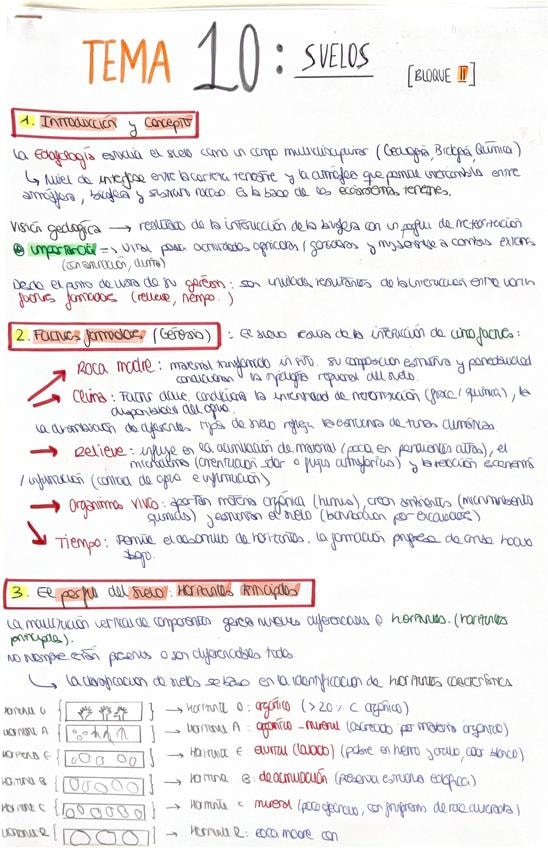 TEMA 10: SUELOS
[BLOQUE II]
1. Introducción y concepto
La Edafología estudia el suelo como un campo multidisciplinar (Geología, Biología, Química)
↳ Nivel de interfase entre la corteza terrestre y la atmósfera que permite intercambios entre
atmósfera, biosfera y sustrato rocoso. Es la base de los ecosistemas terrestres.
Visión geológica → resultado de la interacción de la biosfera con un perfil de meteorización
importancia => Vital para actividades agrícolas / ganaderas y muy sensible a cambios externos
(contaminación, clima)
Desde el punto de vista de su génesis: son unidades resultantes de la interacción entre varios
factores formadores (relieve, tiempo..)
2. Factores formadores (Génesis): El suelo resulta de la interacción de cinco factores:
Roca madre: material transformado in situ. Su composición estructura y porosidad
condicionan la tipología regional del suelo.
Clima: Factor clave. Condiciona la intensidad de meteorización (física / química), la
disponibilidad del agua.
La distribución de diferentes tipos de suelo refleja la estructura de zonas climáticas
→ Relieve: influye en la acumulación de material (poca en pendientes altas), el
microclima (orientación solar o flujos) y la relación escorrentía
/ infiltración (control de agua e infiltración)
→ Organismos vivos: aportan materia orgánica (humus), crean ambientes (microambientes
químicos) y estructuran el suelo (bioturbación por excavadores)
Tiempo: Permite el desarrollo de horizontes. La formación progresa de arriba hacia
abajo.
3. El perfil del suelo: Horizontes Principales
La distribución vertical de componentes genera niveles diferenciales u horizontes. (horizontes
principales).
No siempre están presentes o son diferenciables todos.
↳ La clasificación de suelos se basa en la identificación de horizontes característicos
Horizonte O { } → Horizonte O: orgánico (>20% C orgánico)
Horizonte A { } → Horizonte A: orgánico-mineral (oscurecido por materia orgánica)
Horizonte E { } → Horizonte E: eluvial (lavado) (pobre en hierro y arcilla, color blanco)
Horizonte B { } → Horizonte B: de acumulación (presenta estructura edáfica)
Horizonte C { } → Horizonte C: mineral (poco afectado, con fragmentos de roca)
Horizonte R { } → Horizonte R: roca madre con